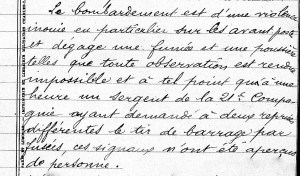 Le bombardement est d'une violence
inouïe en particulier sur les avant postes
et dégage une fumée et une poussière
telles que toute observation est rendue
impossible et à tel point qu'à une
heure un sergent de la 21e Compa-
gnie ayant demandé à deux reprises
différentes le tir de barrage par
fusées, ces signaux n'ont été aperçus
de personne.